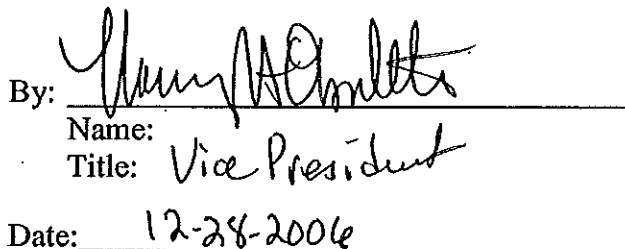 By:
Name:
Title: Vice President
Date: 12-28-2006